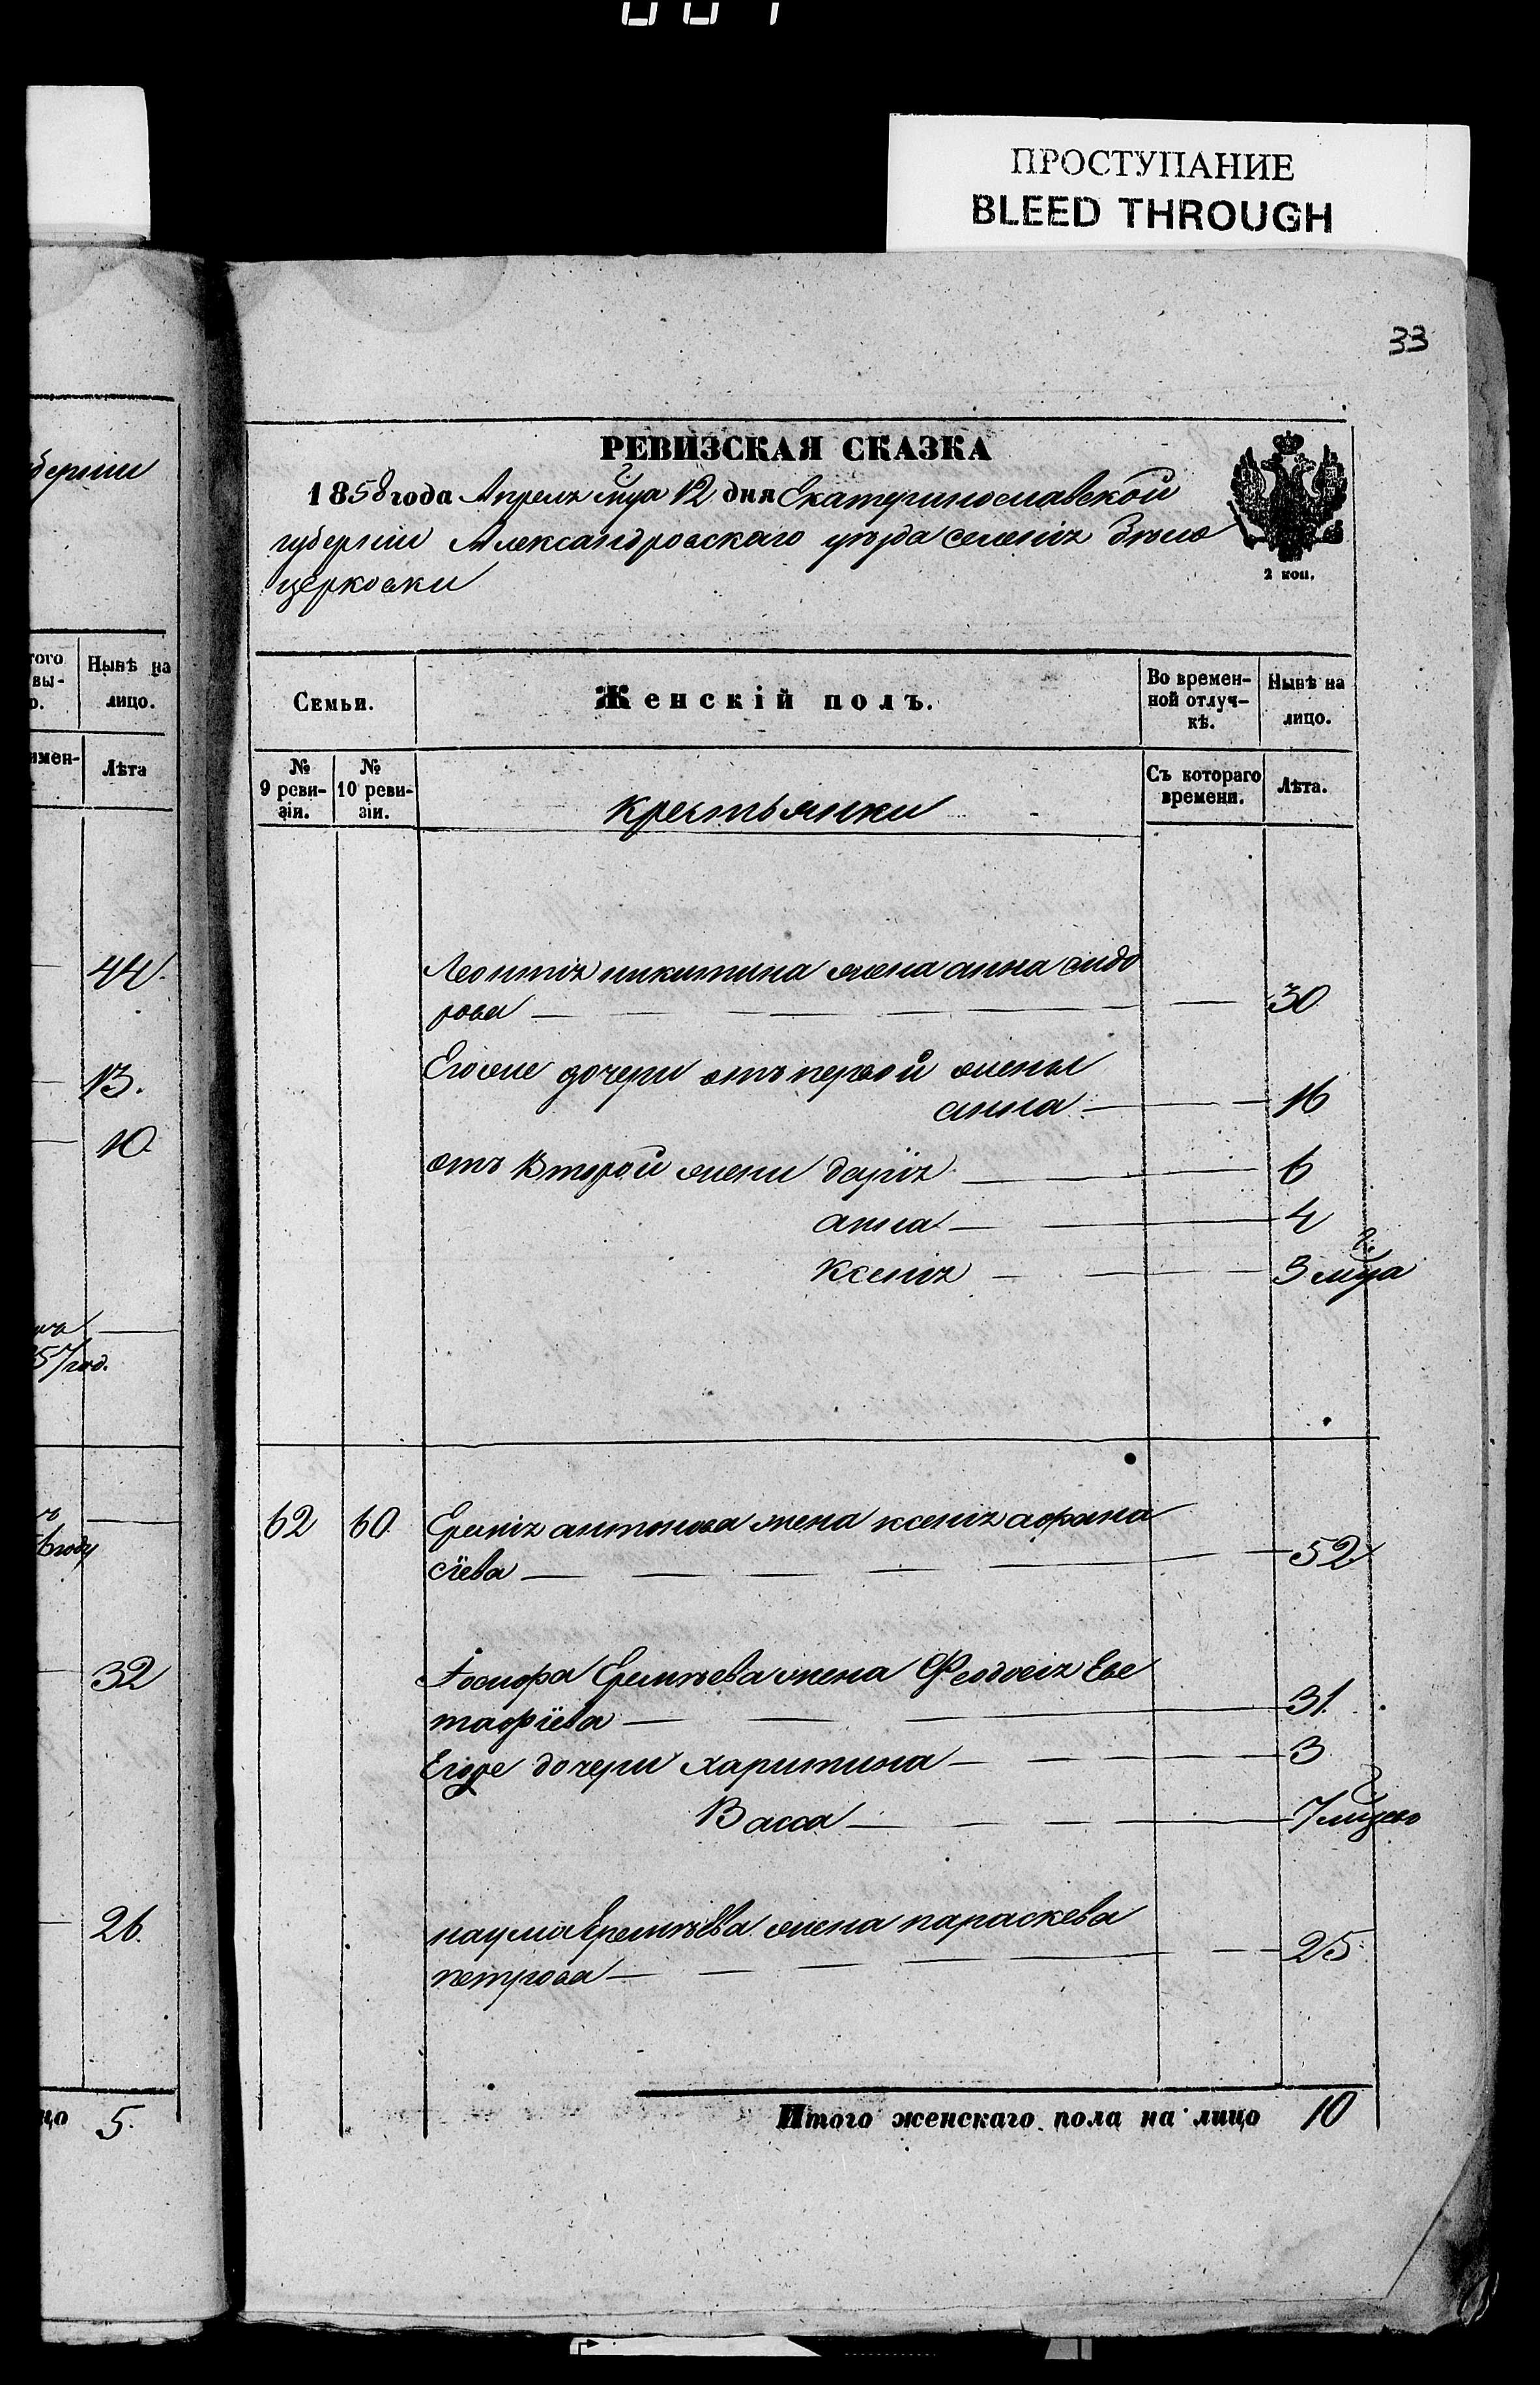 ПРОСТУПАНИЕ
BLEED THROUGH
33
РЕВИЗСКАЯ СКАЗКА
1858 года Апреля мца 12 дня Екатеринославской
губерніи Александровскаго уѣзда селенія Бѣло
церковки
2 коп.
Семьи.
Женскій полъ.
Во времен-
ной отлуч-
кѣ.
Нынѣ на
лицо.
№
9 реви-
зіи.
№
10 реви-
зіи.
крестьянки
Съ котораго
времени.
Лѣта.
Леонтія никитина жена анна сидо
рова 30
Егоже дочери отъ первой жены
анна 16
отъ второй жени дарія 6
анна 4
Ксенія 3 мца
62 60 Еремія антонова жена ксенія афана
сіева 52
Іосифа Еремѣева жена Феодосія Еве
тафіева 31.
Егоже дочери харитина 3
Васса 7 мцево
наума Еремѣева жена параскева
петрова 25
Итого женскаго пола на лицо 10
берніи
того
вы-
о.
Нынѣ на
лицо.
имен-
Лѣта
44.
13.
10
57 год.
6 году
32
26.
цо 5.